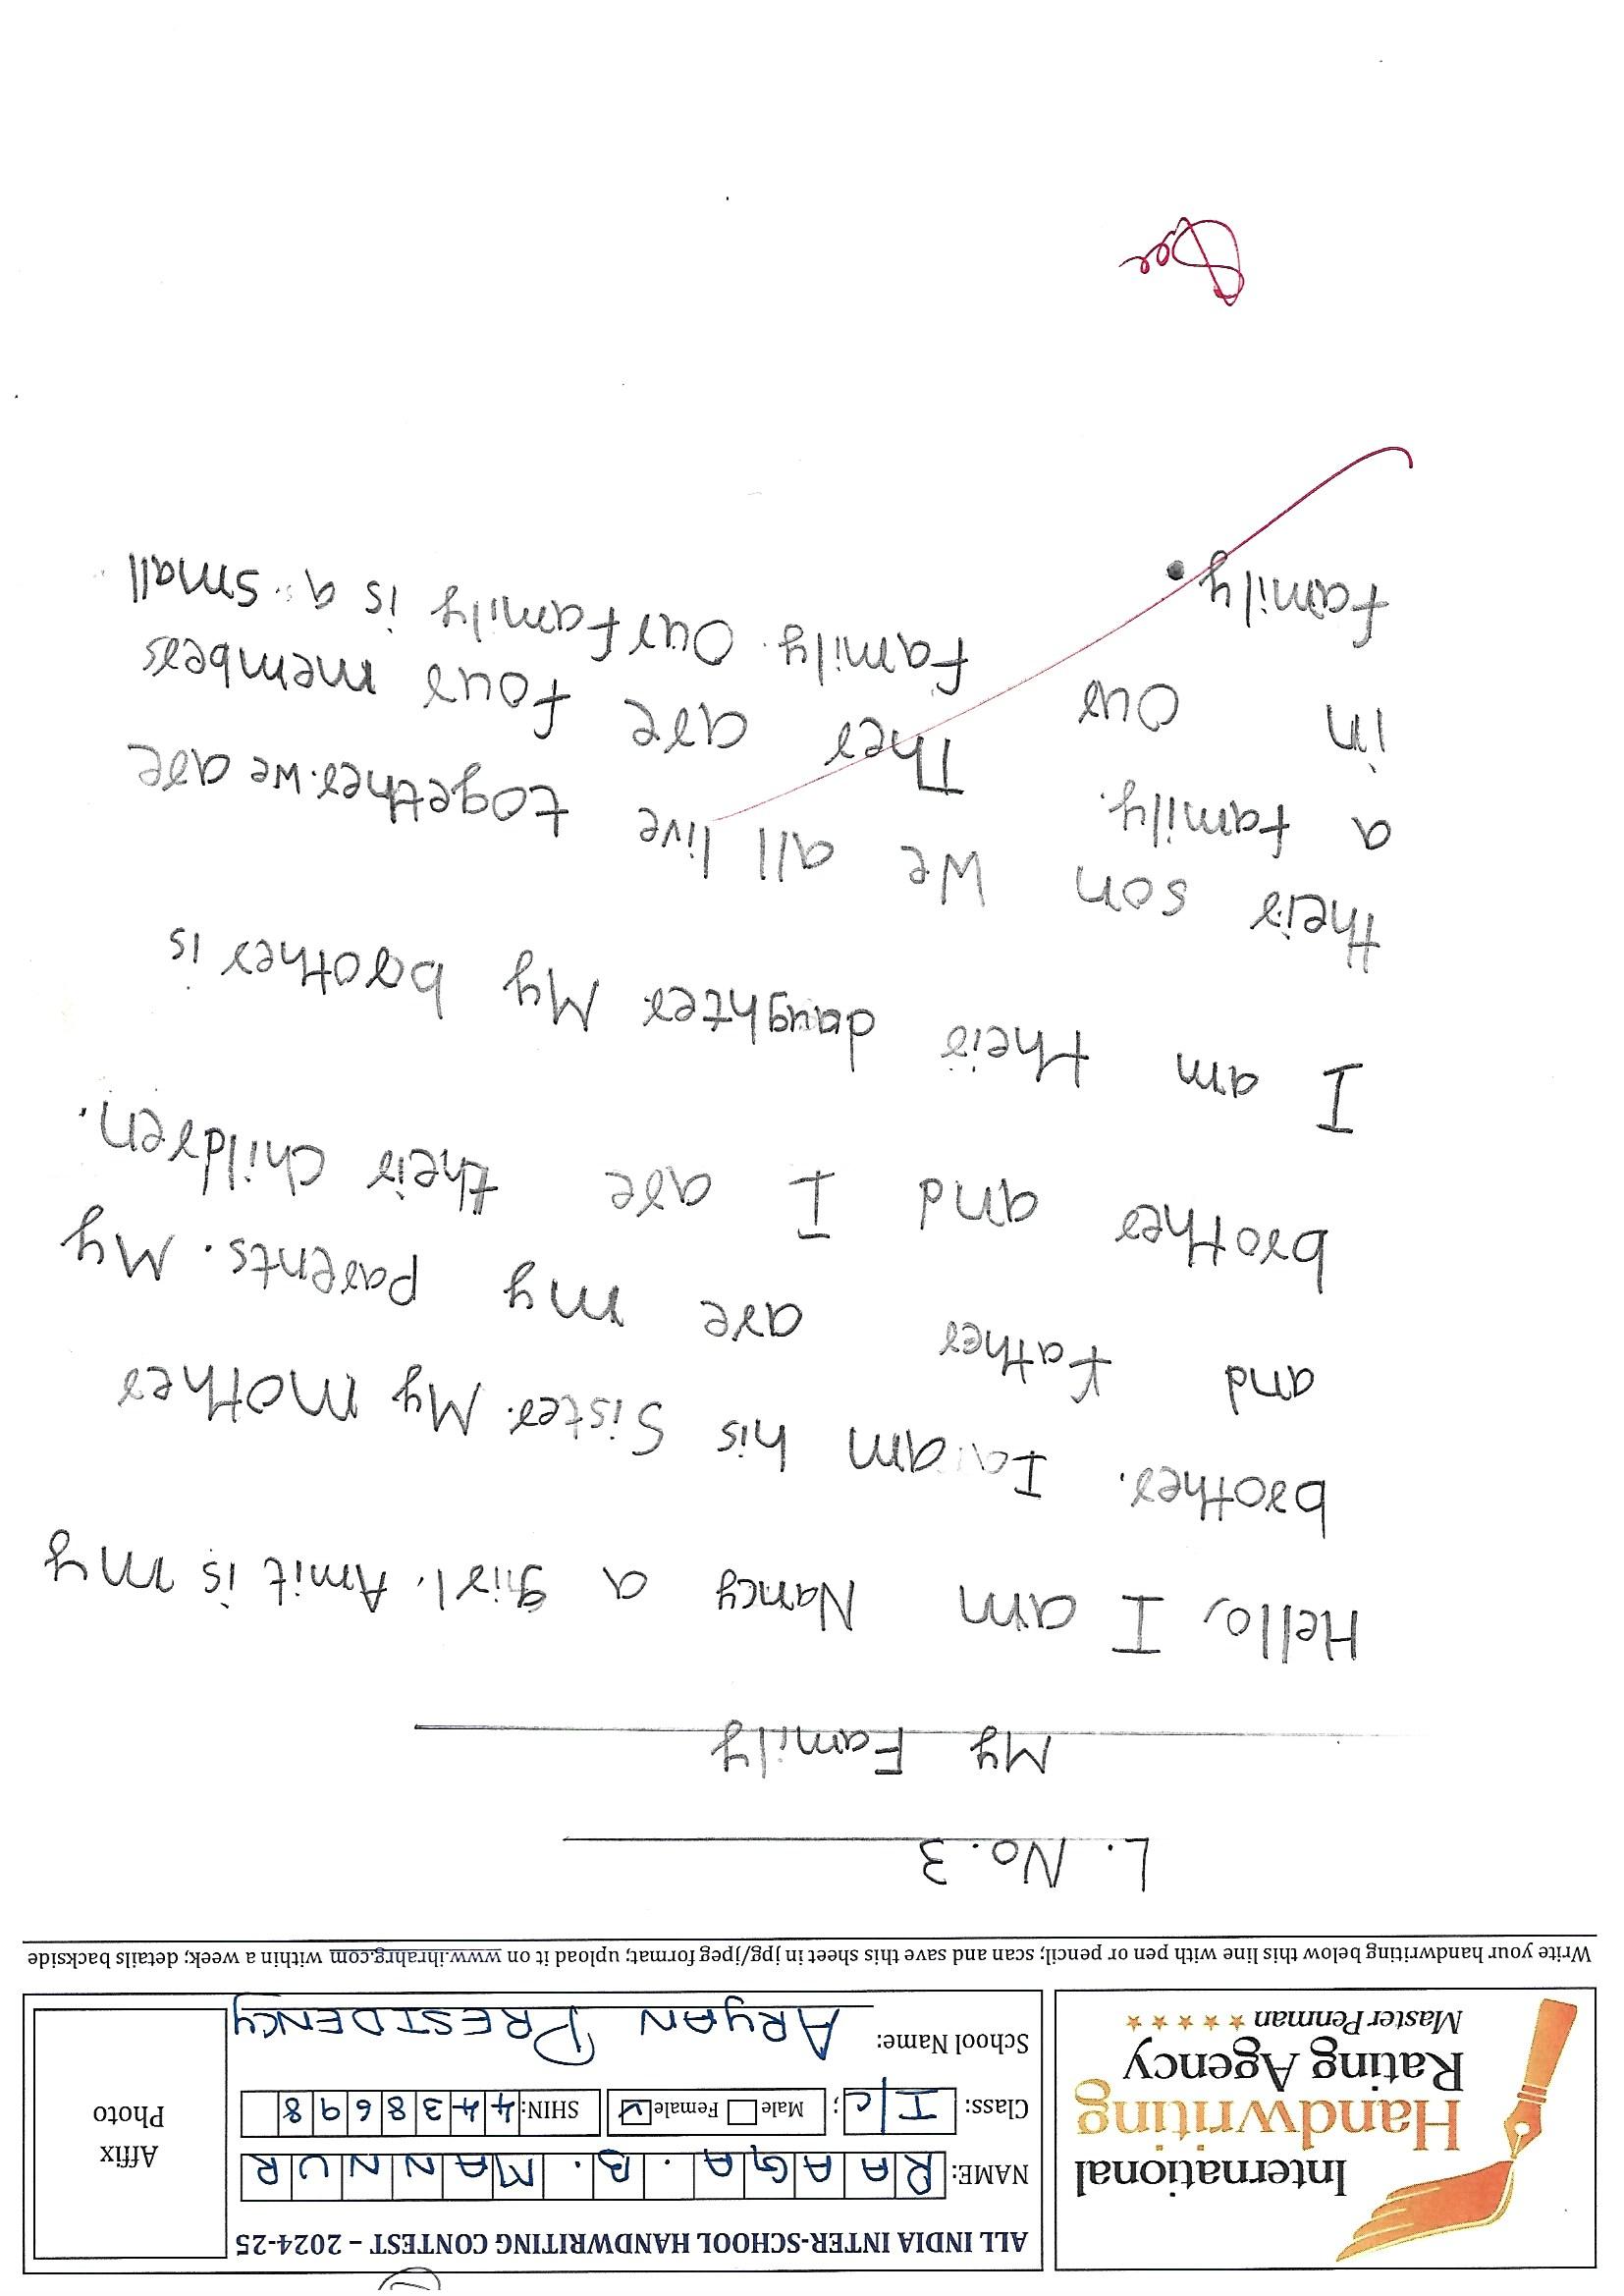 ALL INDIA INTER-SCHOOL HANDWRITING CONTEST – 2024-25
International
Handwriting
Rating Agency
Master Penman
NAME: RAAGA. B. MANNUR
Class: I/C; Male Female SHIN: 4438698
School Name: ARYAN PRESIDENCY
Affix
Photo
Write your handwriting below this line with pen or pencil; scan and save this sheet in jpg/jpeg format; upload it on www.ihrahrg.com within a week; details backside
L. No. 3
My Family
Hello, I am Nancy a girl. Amit is my
brother. I am his Sister. My mother
and Father are my parents. My
brother and I are their children.
I am their daughter My brother is
their son We all live together. we are
a family. Ther are four members
in our family. Our family is a small
family.